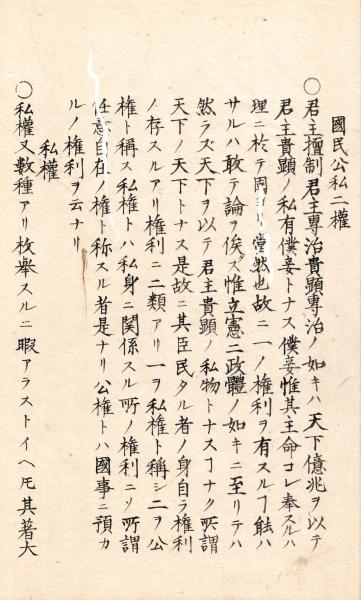 國民公私二權
○君主擅制君主專治貴顯專治ノ如キハ天下億兆ヲ以テ
君主貴顯ノ私有僕妾トナス僕妾惟其主命コレ奉スルハ
理ニ於テ固ヨリ當然也故ニ一ノ權利ヲ有スルヿ能ハ
サルハ敢テ論ヲ俟ス惟立憲二政體ノ如キニ至リテハ
然ラズ天下ヲ以テ君主貴顯ノ私物トナスヿナク所謂
天下ノ天下トナス是故ニ其臣民タル者ノ身自ラ權利
ノ存スルアリ權利ニ二類アリ一ヲ私權ト稱シ二ヲ公
權ト稱ス私權トハ私身ニ関係スル所ノ權利ニ〆所謂
任意自在ノ權ト称スル者是ナリ公權トハ國事ニ預カ
ルノ權利ヲ云ナリ
私權
○私權又數種アリ枚舉スルニ暇アラストイヘ𪜈其著大